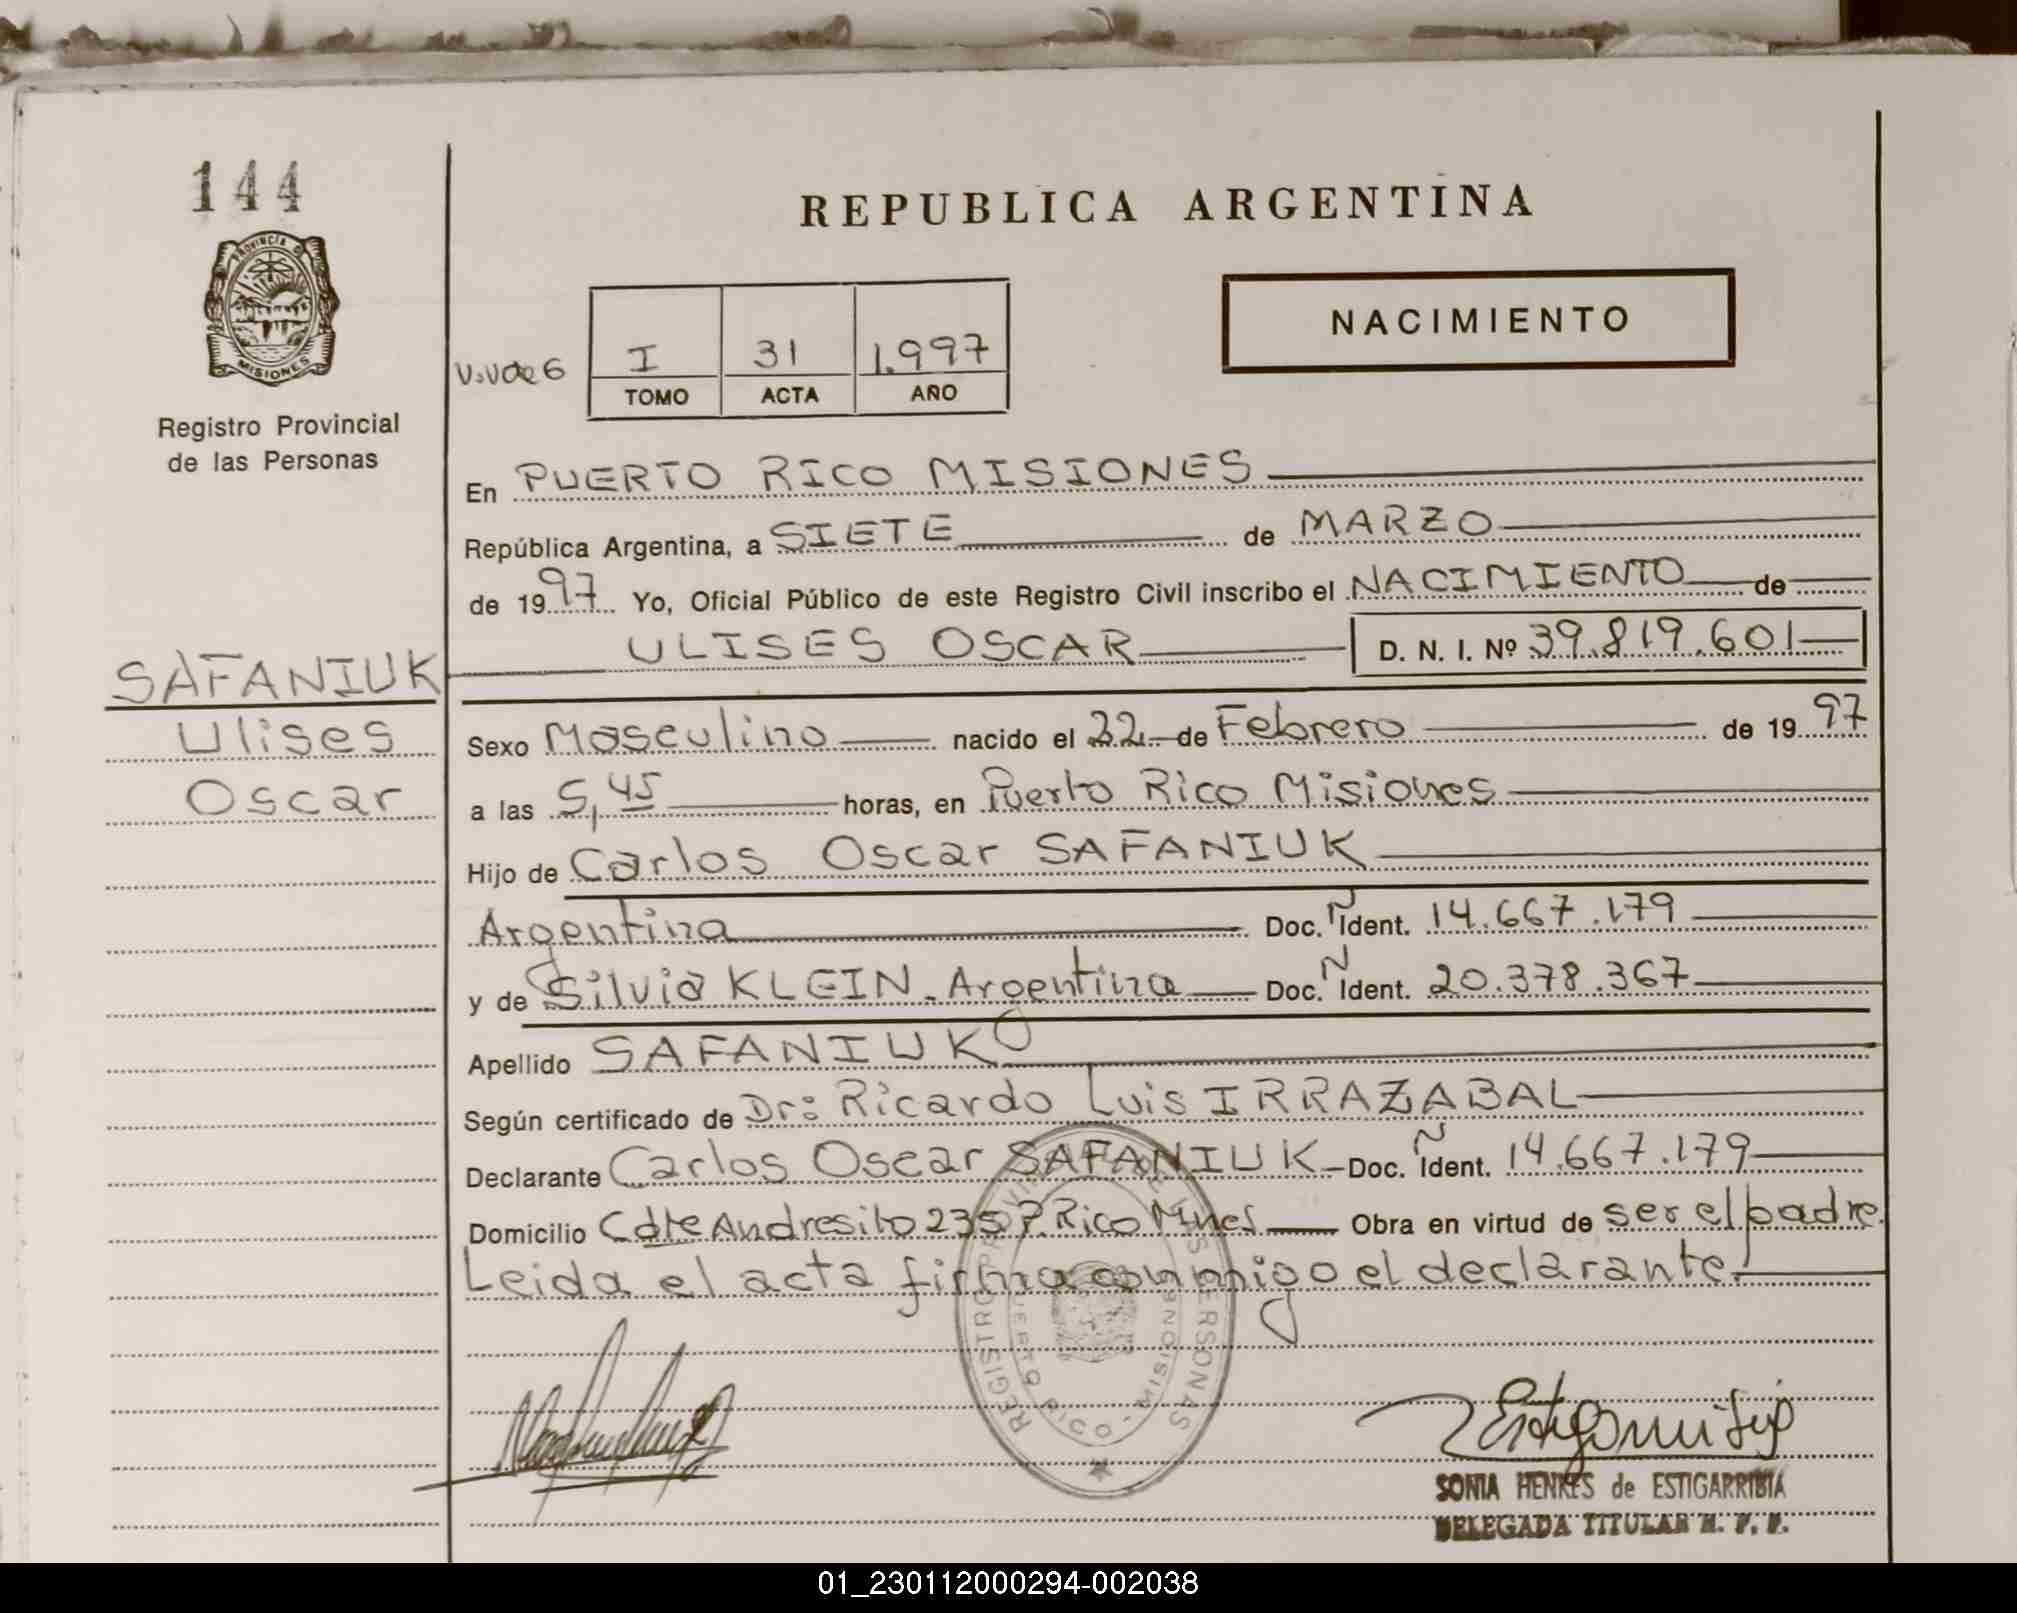 144
PROVINCIA DE
MISIONES
Registro Provincial
de las Personas
REPUBLICA ARGENTINA
NACIMIENTO
I 31 1.997
TOMO ACTA AÑO
En PUERTO RICO MISIONES
República Argentina, a SIETE de MARZO
de 1997 Yo, Oficial Público de este Registro Civil inscribo el NACIMIENTO de
ULISES OSCAR D. N. I. Nº 39.819.601
SAFANIUK
Ulises
Oscar
Sexo Masculino nacido el 22 de Febrero de 1997
a las 5,45 horas, en Puerto Rico Misiones
Hijo de Carlos Oscar SAFANIUK
Argentina Doc. Ñ Ident. 14.667.179
y de Silvia KLEIN. Argentina Doc. Ñ Ident. 20.378.367
Apellido SAFANIUK
Según certificado de Dr: Ricardo Luis IRRAZABAL
Declarante Carlos Oscar SAFANIUK Doc. Ñ Ident. 14.667.179
Domicilio Cdte Andresito 235 P. Rico Mnes Obra en virtud de ser el padre.
Leida el acta firma conmigo el declarante.
REGISTRO PROVINCIAL DE LAS PERSONAS
PUERTO RICO - MISIONES
SONIA HENKES de ESTIGARRIBIA
DELEGADA TITULAR R. P. P.
01_230112000294-002038